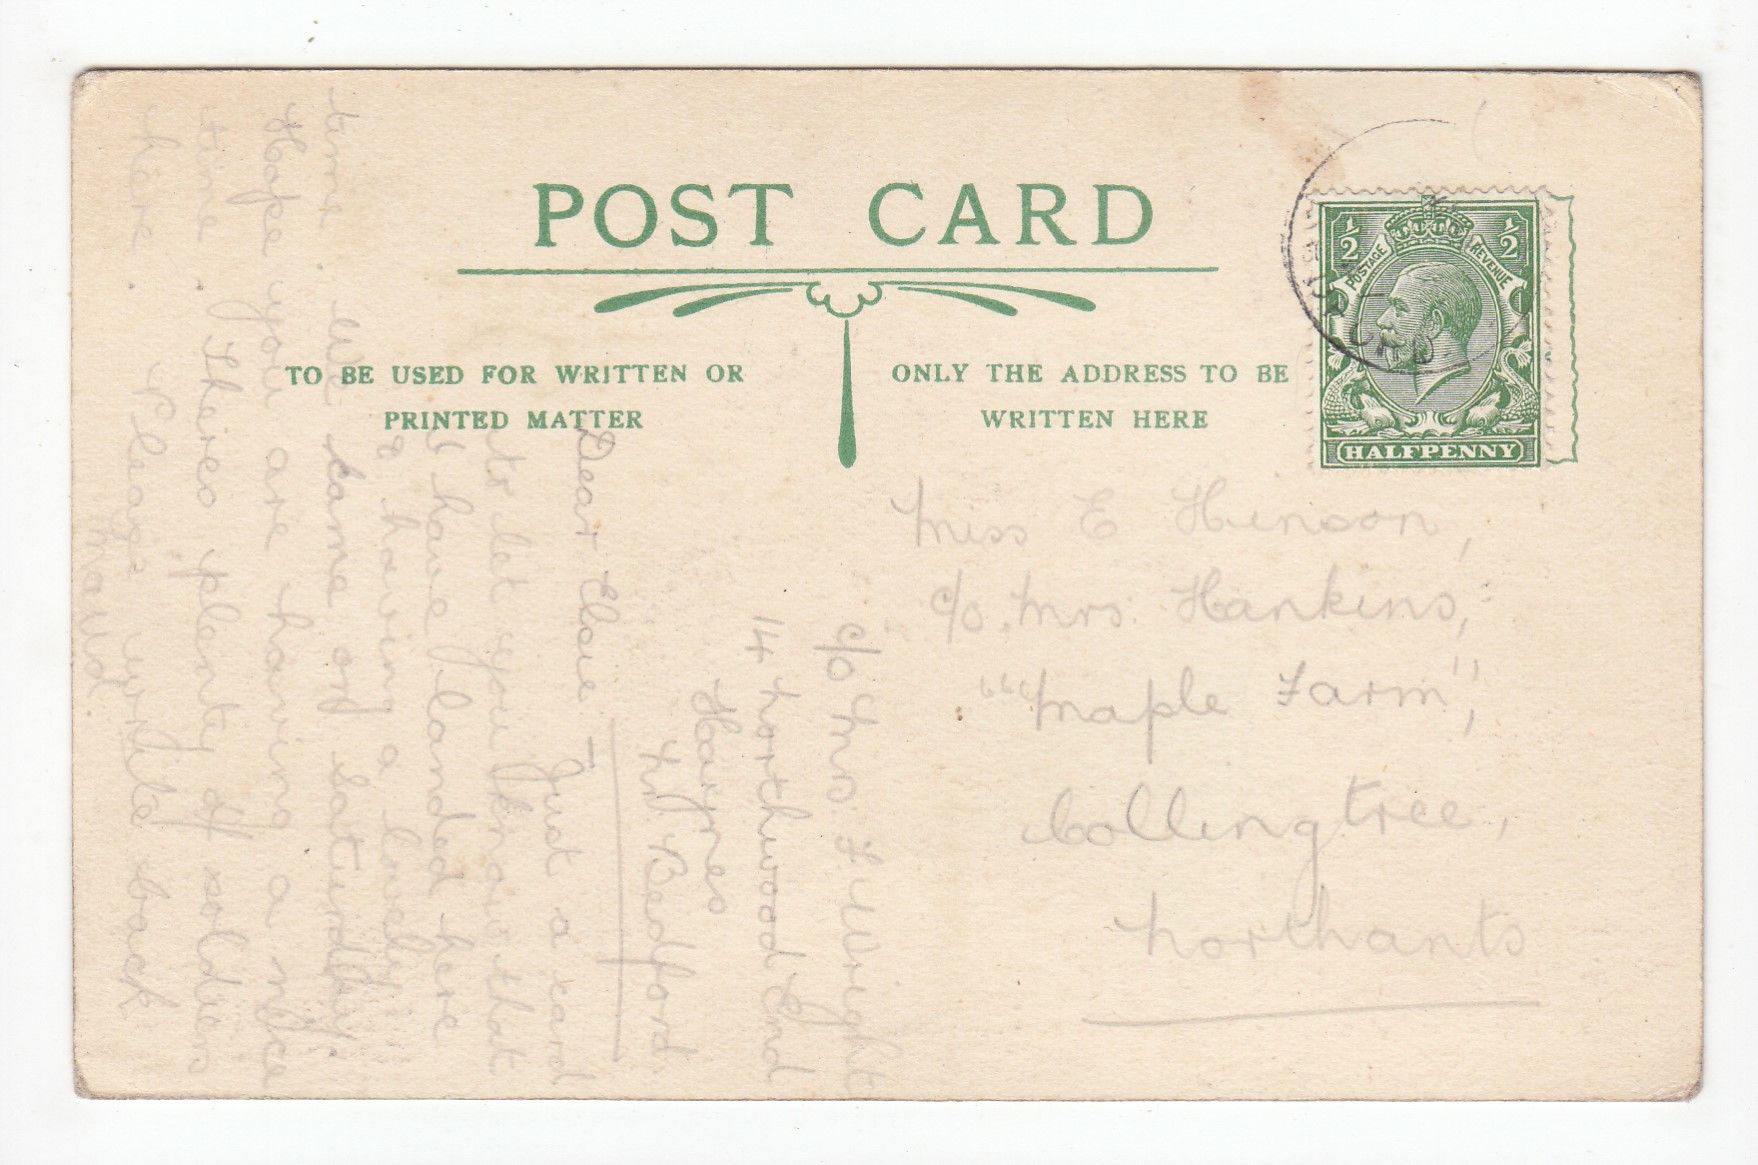 POST CARD
TO BE USED FOR WRITTEN OR
PRINTED MATTER
ONLY THE ADDRESS TO BE
WRITTEN HERE
½ ½
POSTAGE REVENUE
HALFPENNY
Miss E Hinson,
c/o. Mrs. Hankins,
"Maple Farm",
Collingtree,
Northants
c/o Mrs. F. Wright
14 Northwood End
Haynes
Nr Bedford
Dear Elsie. –
Just a card
to let you know that
I have landed here
& having a lovely
time. We came on Saturday.
Hope you are having a nice
time. Theres plenty of soldiers
here. Please write back
Maud.